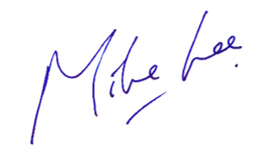 Mike Lee